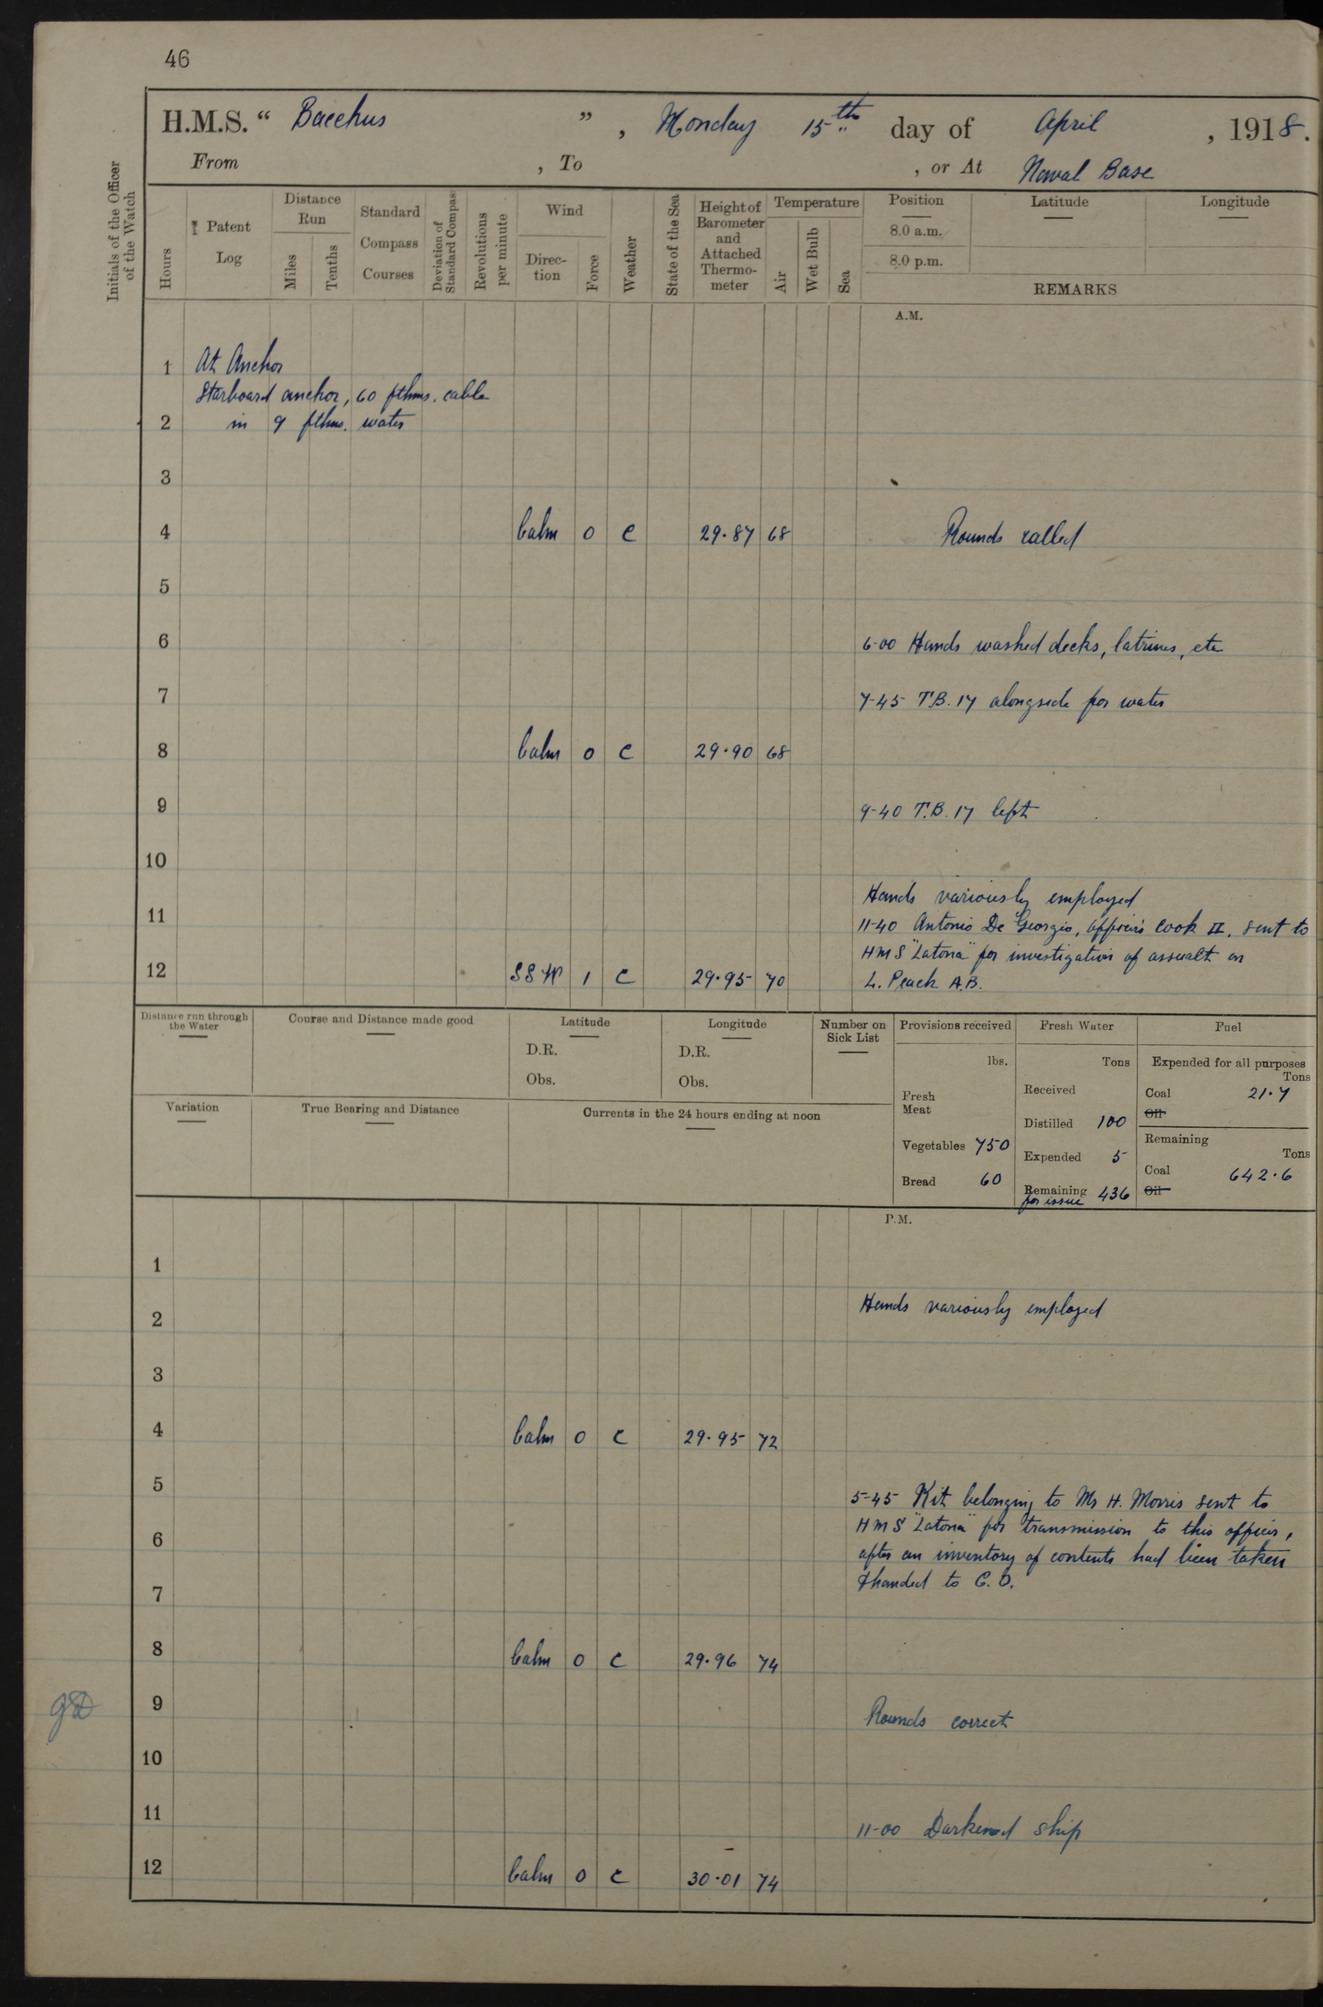 46
H.M.S. “ Bacchus ” , Monday 15th day of April , 1918.
From , To , or At Naval Base
Initials of the Officer of the Watch
Hours
Patent Log
Distance Run
Miles
Tenths
Standard Compass Courses
Deviation of Standard Compass
Revolutions per minute
Wind
Direction
Force
Weather
State of the Sea
Height of Barometer and Attached Thermometer
Temperature
Air
Wet Bulb
Sea
Position
8.0 a.m.
8.0 p.m.
Latitude
Longitude
REMARKS
A.M.
1 At Anchor
Starboard anchor, 60 fthms. cable
2 in 9 fthms. water
3
4 Calm 0 c 29.87 68 Rounds called
5
6 6-00 Hands washed decks, latrines, etc
7 7-45 T.B. 17 alongside for water
8 Calm 0 c 29.90 68
9 9-40 T.B. 17 left
10
Hands variously employed
11 11-40 Antonio De Georgio, officer's cook II, sent to
HMS "Latona" for investigation of assualt on
12 SSW 1 c 29.95 70 L. Peach A.B.
Distance run through the Water
Course and Distance made good
Latitude
D.R.
Obs.
Longitude
D.R.
Obs.
Number on Sick List
Provisions received
lbs.
Fresh Meat
Vegetables 750
Bread 60
Fresh Water
Tons
Received
Distilled 100
Expended 5
Remaining for issue 436
Fuel
Expended for all purposes
Tons
Coal 21.7
Oil
Remaining
Tons
Coal 642.6
Oil
Variation
True Bearing and Distance
Currents in the 24 hours ending at noon
P.M.
1
2 Hands variously employed
3
4 Calm 0 c 29.95 72
5 5-45 Kit belonging to Mr H. Morris sent to
HMS "Latona" for transmission to this officer,
6 after an inventory of contents had been taken
& handed to C.O.
7
8 Calm 0 c 29.96 74
9 Rounds correct
10
11 11-00 Darkened ship
12 Calm 0 c 30.01 74